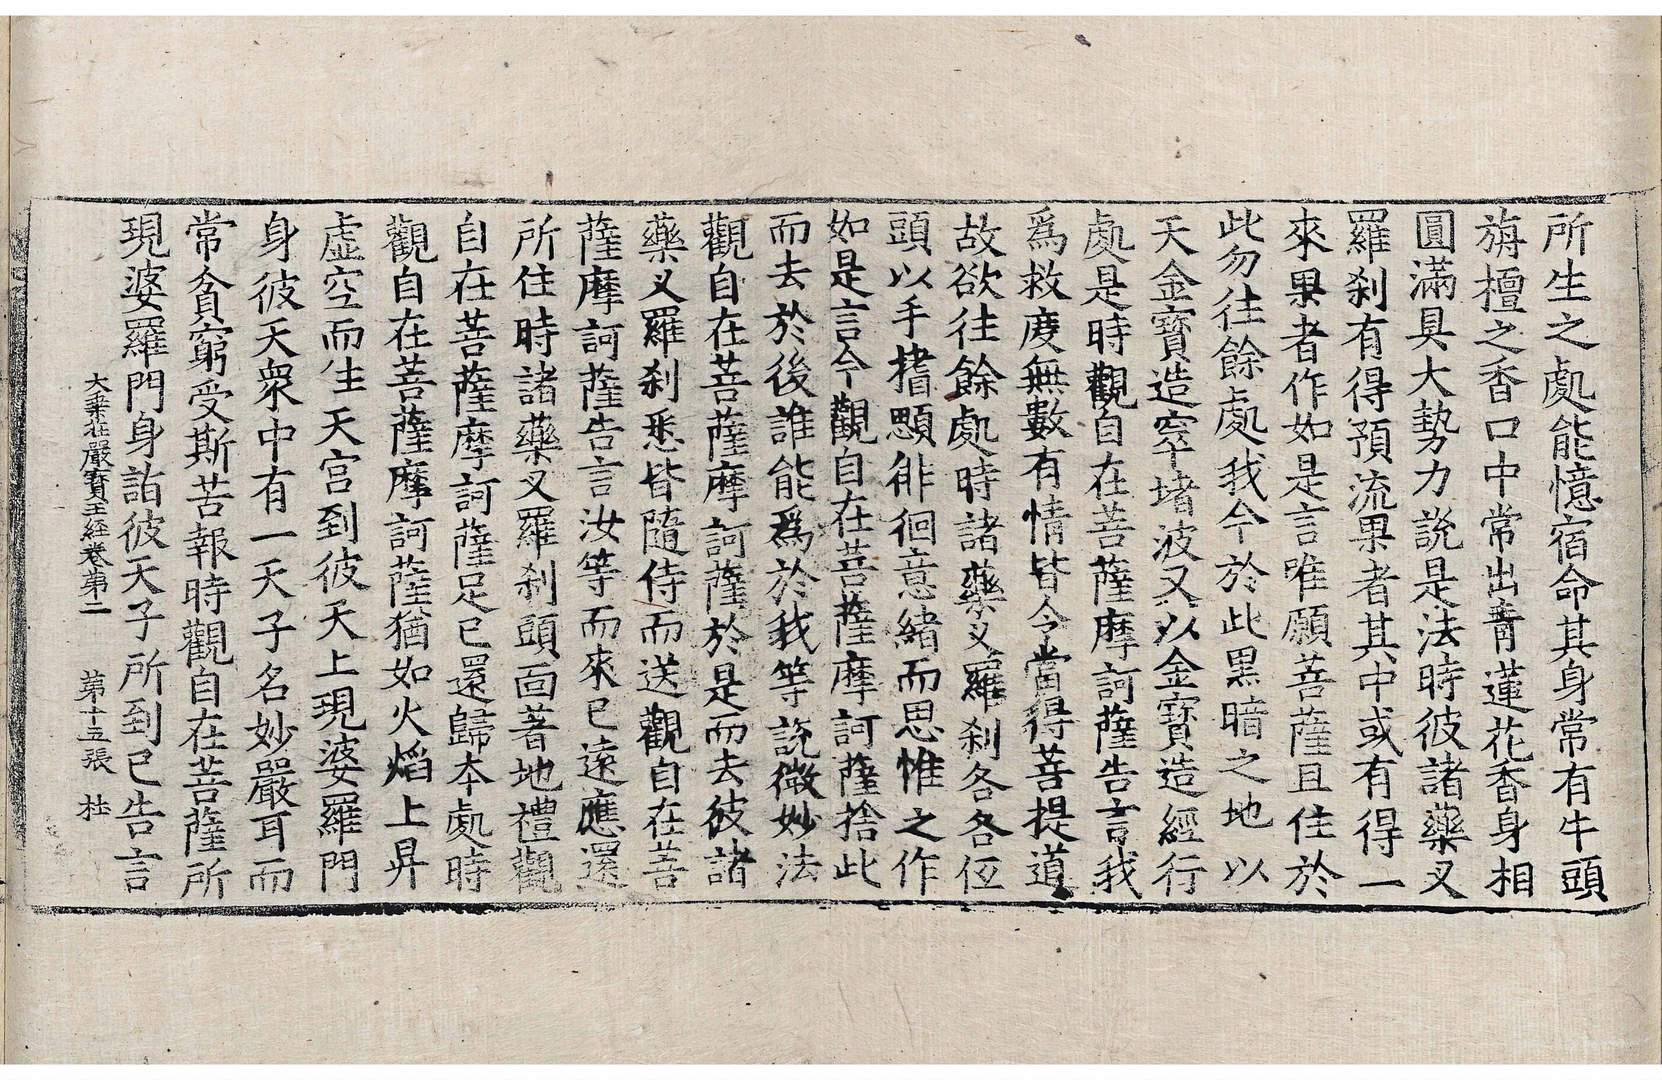 所生之處能憶宿命其身常有牛頭
旃檀之香口中常出青蓮花香身相
圓滿具大勢力說是法時彼諸藥叉
羅刹有得預流果者其中或有得一
來果者作如是言唯願菩薩且住於
此勿往餘處我今於此黑暗之地以
天金寶造窣堵波又以金寶造經行
處是時觀自在菩薩摩訶薩告言我
爲救度無數有情皆令當得菩提道
故欲往餘處時諸藥叉羅刹各各低
頭以手搘顋徘徊意緒而思惟之作
如是言今觀自在菩薩摩訶薩捨此
而去於後誰能爲於我等說微妙法
觀自在菩薩摩訶薩於是而去彼諸
藥叉羅刹悉皆隨侍而送觀自在菩
薩摩訶薩告言汝等而來已遠應還
所住時諸藥叉羅刹頭面著地禮觀
自在菩薩摩訶薩足已還歸本處時
觀自在菩薩摩訶薩猶如火焰上昇
虛空而往天宮到彼天上現婆羅門
身彼天衆中有一天子名妙嚴耳而
常貧窮受斯苦報時觀自在菩薩所
現婆羅門身詣彼天子所到已告言
大乘莊嚴寶王經卷第二 第十五張 杜